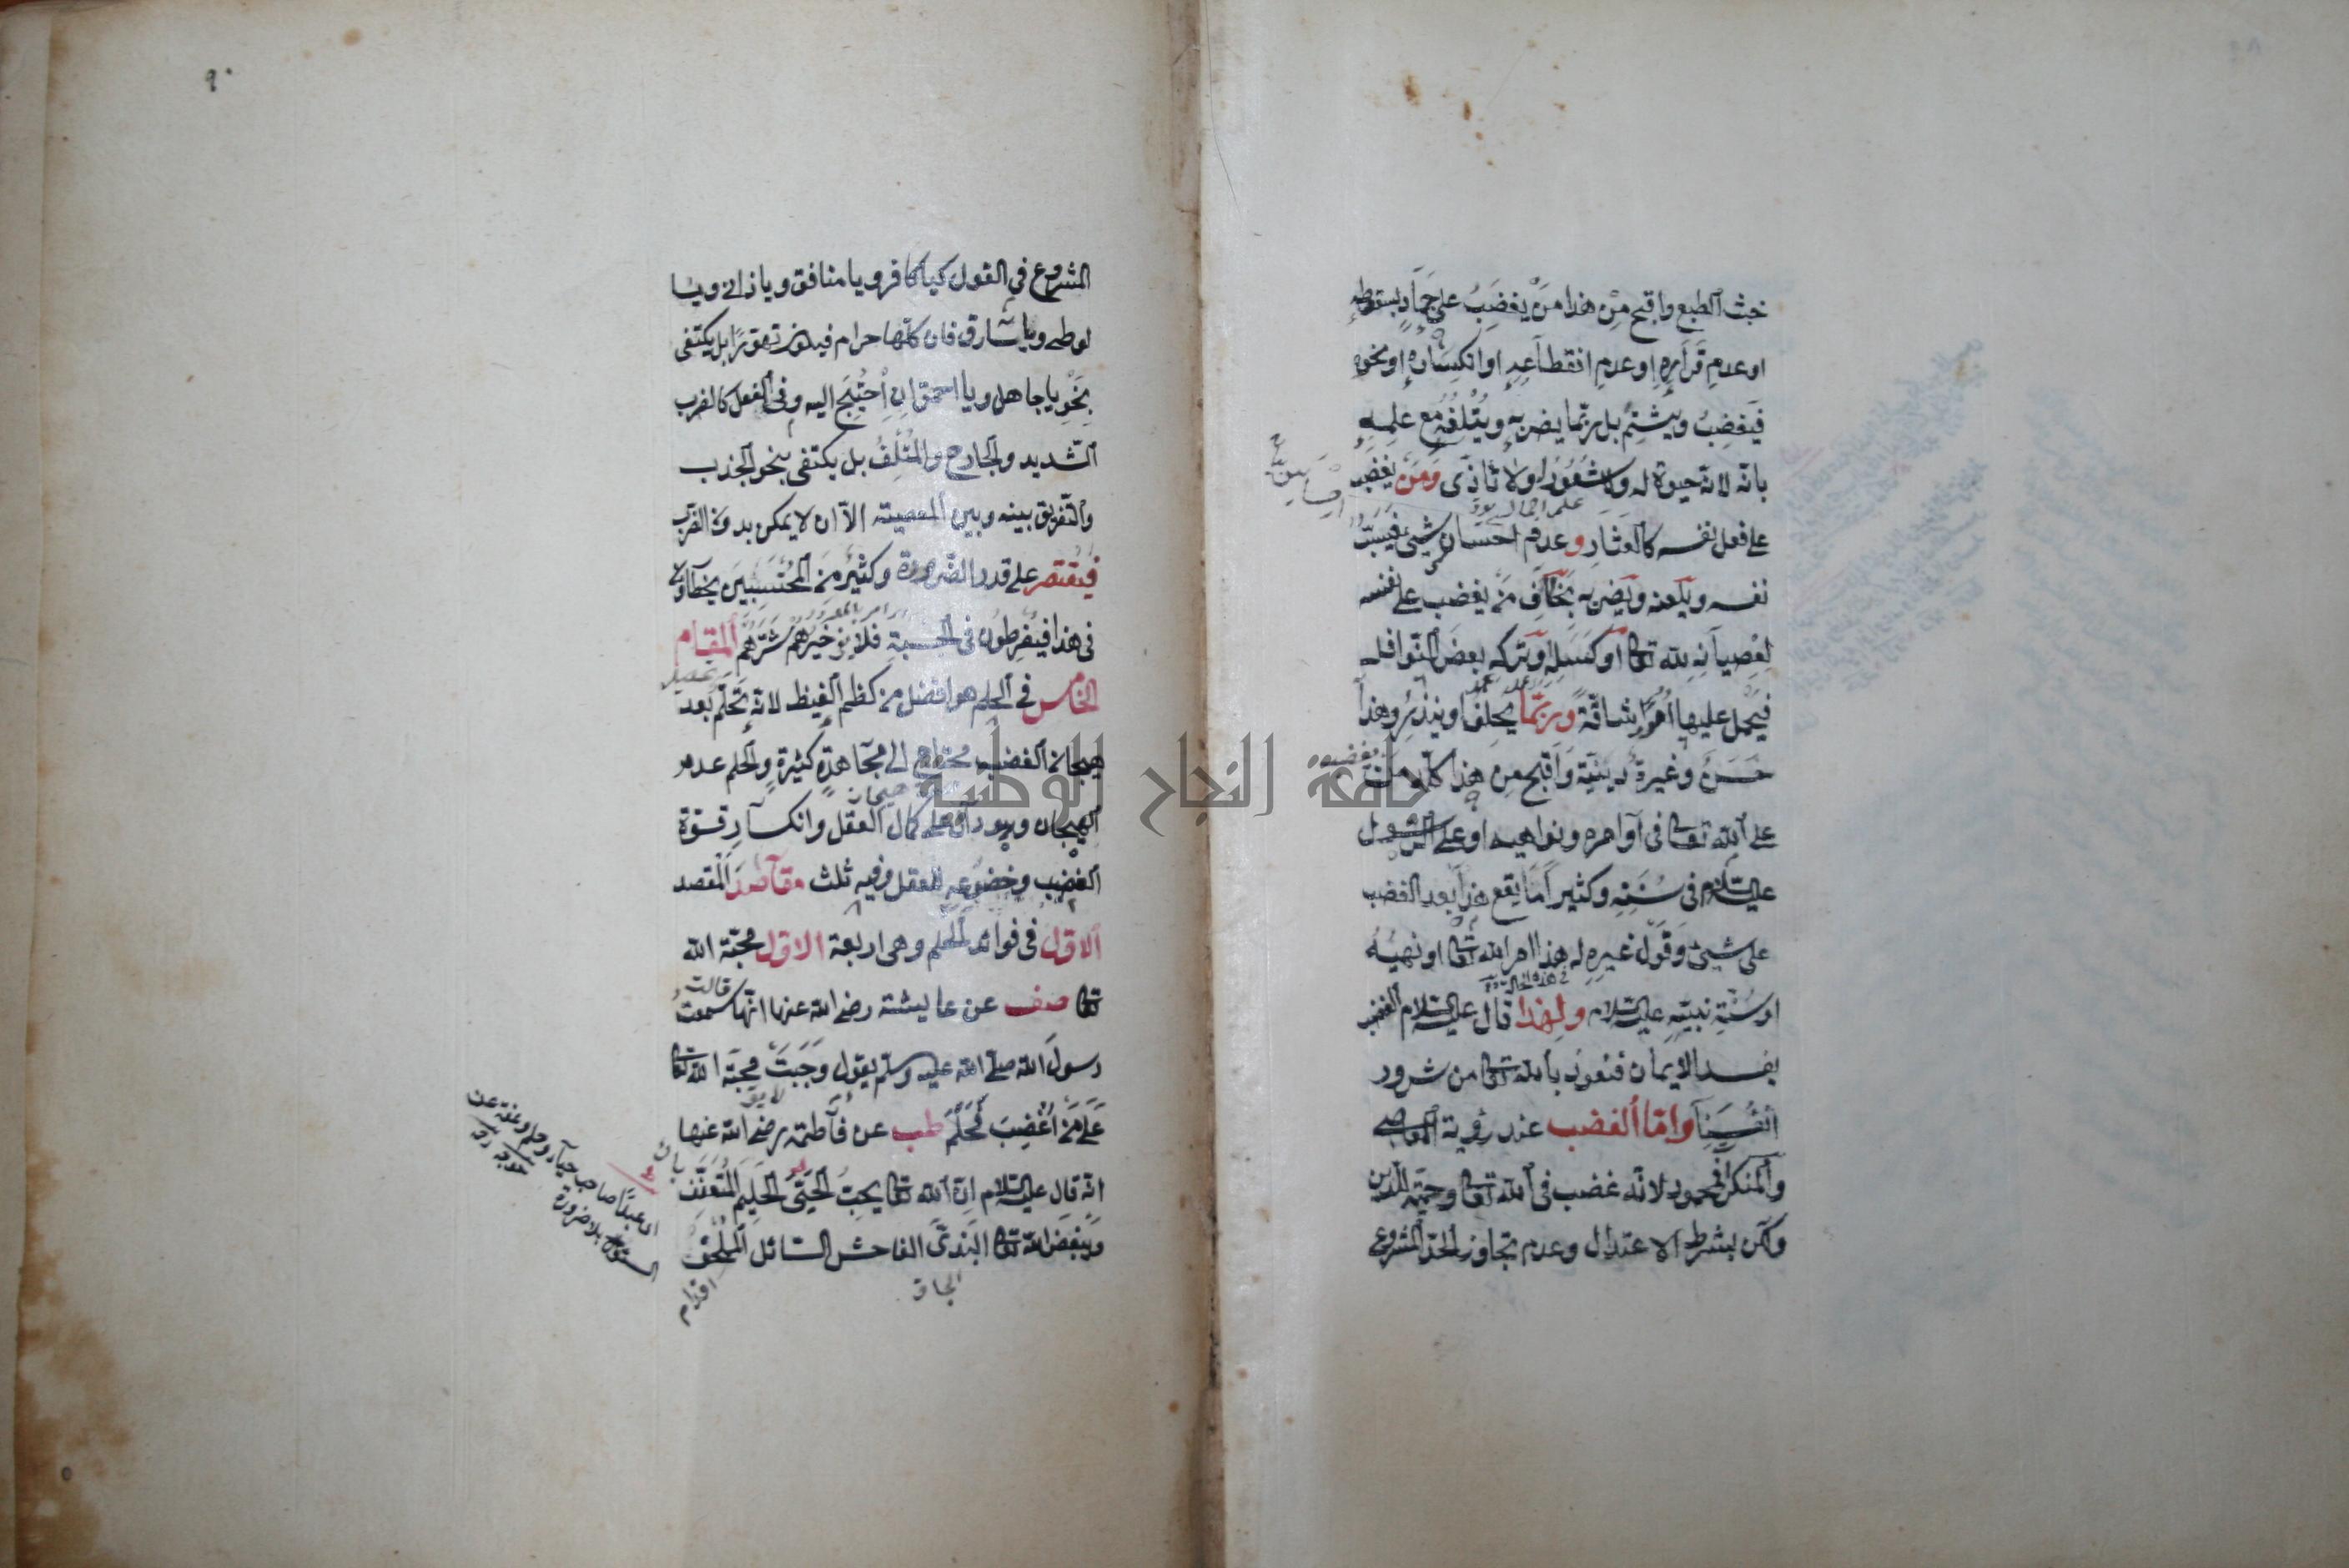 خبث الطبع واقبح من هذا من يغضب على جماد بسقوطه
او عدم قراره او عدم انقطاعه او انكساره او نحوه
فيغضب ويشتم بل ربما يضربه ويتلفه مع علمه
بانه لا حيوة له ولا شعور ولا تأذى ومن يغضب
على فعل نفسه كالعثار وعدم احسان شيئ فيسب
نفسه ويلعنه ويضربه بخلاف من يغضب على نفسه
لعصيانه لله تعا او كسله وتركه بعض النوافل
فيحمل عليها امورا شاقة وربما يحلف او ينذر وهذا
حسن وغيرة دينية واقبح من هذا كله من
على الله تعا فى اوامره ونواهيه او على الرسول
عليه السلام فى سننه وكثيرا ما يقع هذا بعد الغضب
على شيئ وقول غيره له هذا امر الله تعا او نهيه
او سنة نبيه عليه السلام ولهذا قال عليه السلام الغضب
يفسد الايمان فنعوذ بالله تعا من شرور
انفسنا واما الغضب عند رؤية المعاصى
والمنكر فمحمود لانه غضب فى الله تعا وحمية للدين
ولكن بشرط الاعتدال وعدم تجاوز الحد المشروع
٩٠
المشروع فى القول كيا كافر ويا منافق ويا زانى ويا
لوطى ويا سارق فان كلها حرام فيكون تهورا بل يكتفى
بنحو يا جاهل ويا احمق ان احتيج اليه وفى الفعل كالضرب
الشديد والجارح والمتلف بل يكتفى بنحو الجذب
والتفريق بينه وبين المعصية الا ان لا يمكن بدون الضرب
فيقتصر على قدر الضرورة وكثير من المحتسبين يخطأون
فى هذا فيفرطون فى الحسبة فلا يفى خيرهم شرهم المقام
الخامس فى الحلم هو افضل من كظم الغيظ لانه تحلم بعد
هيجان الغضب محتاج الى مجاهدة كثيرة والحلم عدم
الهيجان وهو دال على كمال العقل وانكسار قوة
الغضب وخضوعه للعقل وفيه ثلث مقاصد المقصد
الاول فى فوائد الحلم وهى اربعة الاول محبة الله
تعا صف عن عايشة رضى الله عنها انها قالت سمعت
رسول الله صلى الله عليه وسلم يقول وجبت محبة الله تعا
على من اغضب فحلم طب عن فاطمة رضى الله عنها
انه قال عليه السلام ان الله تعا يحب الحيى الحليم المتعفف
ويبغض الله تعا البذى الفاحش السائل الملحف
جامعة النجاح الوطنية